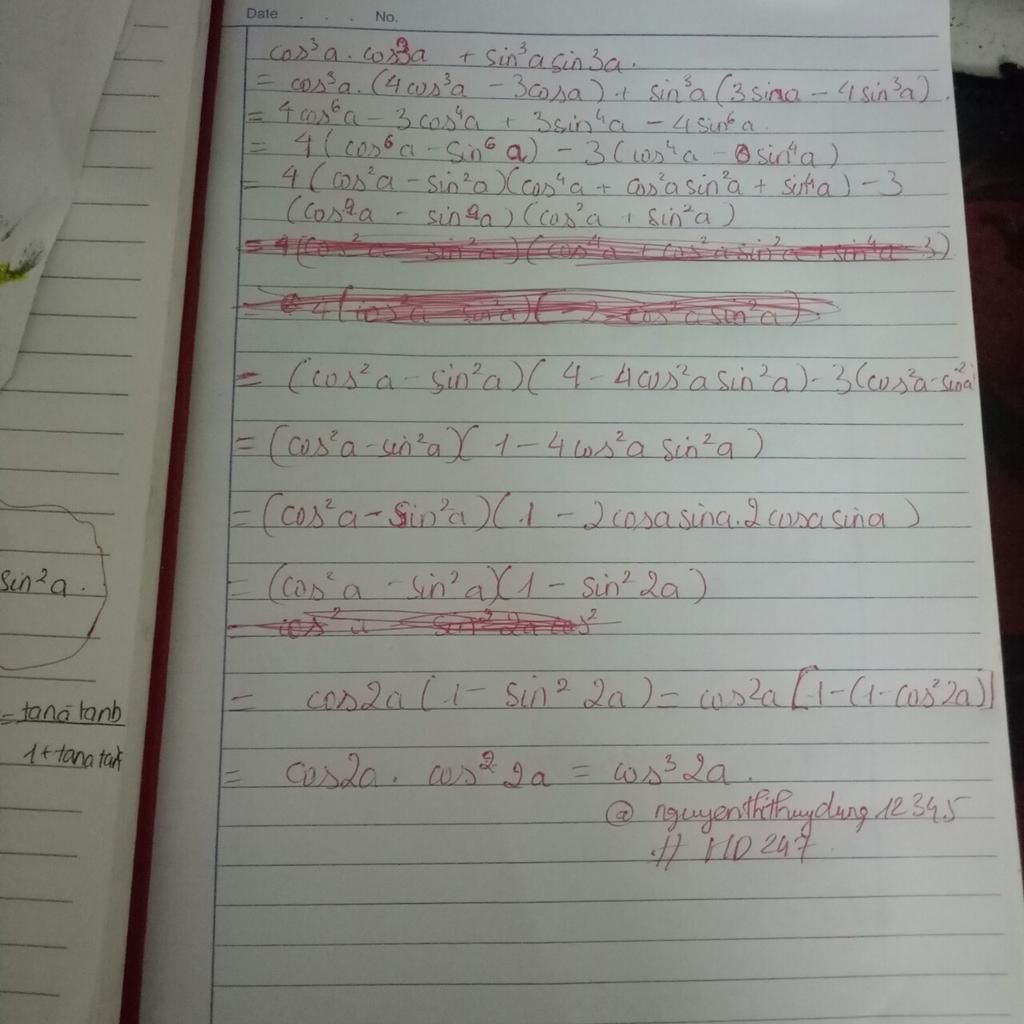 Date . . . No.
cos³a. cos3a + sin³a sin3a.
= cos³a. (4cos³a - 3cosa) + sin³a (3sina - 4sin³a).
= 4cos⁶a - 3cos⁴a + 3sin⁴a - 4sin⁶a.
= 4(cos⁶a - sin⁶a) - 3(cos⁴a - sin⁴a)
= 4(cos²a - sin²a)(cos⁴a + cos²a sin²a + sin⁴a) - 3
(cos²a - sin²a)(cos²a + sin²a)
= 4(cos²a - sin²a)(cos⁴a + cos²a sin²a + sin⁴a - 3)
= (cos²a - sin²a)(4 - 4cos²a sin²a) - 3(cos²a - sin²a
= (cos²a - sin²a)(1 - 4cos²a sin²a)
= (cos²a - sin²a)(1 - 2cosa sina. 2cosa sina)
= (cos²a - sin²a)(1 - sin²2a)
= cos2a (1 - sin²2a) = cos2a [1-(1-cos²2a)]
= cos2a. cos²2a = cos³2a.
@ nguyenthithuydung12345
# HD247
sin²a.
= tana tanb
1 + tana tan